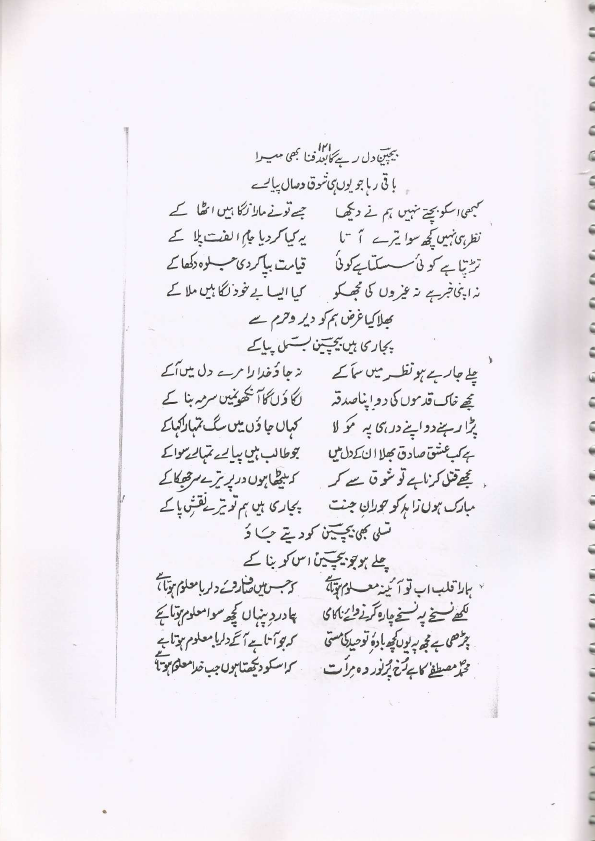 ۱۲۱
بیچین دل رہے گا بعد فنا بھی میرا
باقی رہا جو یوں ہی شوق وصال پیارے
کبھی اسکو بچتے نہیں ہم نے دیکھا جسے تو نے مارا نگاہیں اٹھا کے
نظر ہی نہیں کچھ سوا تیرے آتا یہ کیا کر دیا جام الفت پلا کے
تڑپتا ہے کوئی سسکتا ہے کوئی قیامت بپا کر دی جلوہ دکھا کے
نہ اپنی خبر ہے نہ غیروں کی مجھکو کیا ایسا بے خود نگاہیں ملا کے
بھلا کیا غرض ہم کو دیر و حرم سے
پجاری ہیں بیچین بسمل پیا کے
چلے جا رہے ہو نظر میں سما کے نہ جاؤ خدا را مرے دل میں آ کے
مجھے خاک قدموں کی دو اپنا صدقہ لگاؤں گا آنکھوں میں سرمہ بنا کے
پڑا رہنے دو اپنے در ہی پہ مولا کہاں جاؤں میں سگ تمہارا کہا کے
ہے کب عشق صادق بھلا ان کے دل میں جو طالب ہیں پیارے تمہارے سوا کے
مجھے قتل کرنا ہے تو شوق سے کر کہ بیٹھا ہوں در پر ترے سر جھکا کے
مبارک ہوں زاہد کو حوران جنت پجاری ہیں ہم تو ترے نقش پا کے
تسلی بھی بیچین کو دیتے جاؤ
چلے ہو جو بیچین اس کو بنا کے
ہمارا قلب اب تو آئینہ معلوم ہوتا ہے کہ جس میں صاف روئے دلربا معلوم ہوتا ہے
لکھے نسخے پہ نسخے چارہ گر نے وائے ناکامی پہ درد پنہاں کچھ سوا معلوم ہوتا ہے
چڑھی ہے مجھ پہ یوں کچھ بادۂ توحید کی مستی کہ جو آتا ہے آگے دلربا معلوم ہوتا ہے
محمد مصطفیٰ کا ہے رُخ پُر نور وہ مرأت کہ اسکو دیکھتا ہوں جب خدا معلوم ہوتا ہے